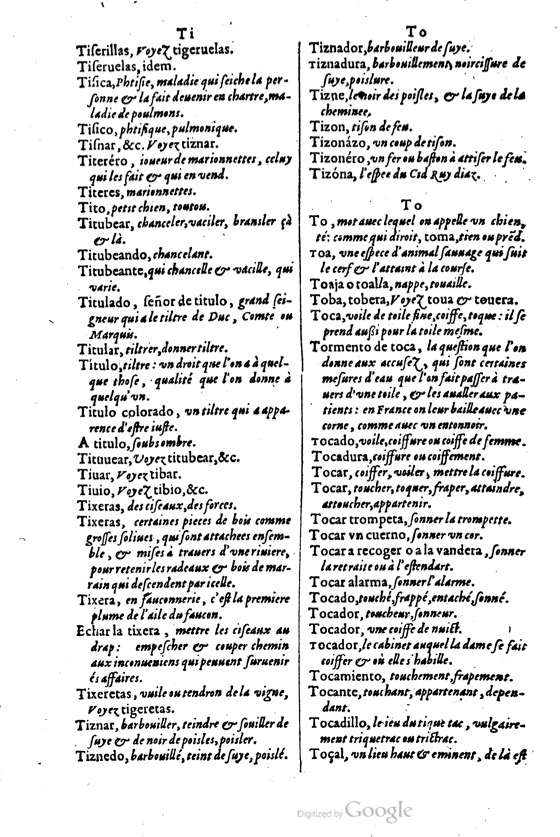 Ti
Tiſerillas, Voyez tigeruelas.
Tiſeruelas, idem.
Tiſica, Phtiſie, maladie qui ſeiche la per-
ſonne & la fait deuenir en chartre, ma-
ladie de poulmons.
Tiſico, phtiſique, pulmonique.
Tiſnar, &c. Voyez tiznar.
Titeréro, ioueur de marionnettes, celuy
qui les fait & qui en vend.
Titeres, marionnettes.
Tito, petit chien, toutou.
Titubear, chanceler, vaciler, bransler çà
& là.
Titubeando, chancelant.
Titubeante, qui chancelle & vacille, qui
varie.
Titulado, ſeñor de titulo, grand ſei-
gneur qui a le tiltre de Duc, Comte ou
Marquis.
Titular, tiltrer, donner tiltre.
Título, tiltre: vn droit que l'on a à quel-
que chose, qualité que l'on donne à
quelqu'vn.
Titulo colorado, vn tiltre qui a appa-
rence d'eſtre iuſte.
A titulo, ſoubs ombre.
Tituuear, Voyez titubear, &c.
Tiuar, Voyez tibar.
Tiuio, Voyez tibio, &c.
Tixeras, des ciſeaux, des forces.
Tixeras, certaines pieces de bois comme
groſſes ſoliues, qui ſont attachees enſem-
ble, & miſes à trauers d'vne riuiere,
pour retenir les radeaux & bois de mar-
rain qui deſcendent par icelle.
Tixera, en fauconnerie, c'eſt la premiere
plume de l'aile du faucon.
Echar la tixera, mettre les ciſeaux au
drap: empeſcher & couper chemin
aux inconueniens qui peuuent ſuruenir
és affaires.
Tixeretas, vuile ou tendron de la vigne,
Voyez tigeretas.
Tiznar, barbouiller, teindre & ſouiller de
ſuye & de noir de poisles, poisler.
Tiznedo, barbouillé, teint de ſuye, poislé.
To
Tiznador, barbouilleur de ſuye.
Tiznadura, barbouillement, noirciſſure de
ſuye, poislure.
Tizne, le noir des poisles, & la ſuye de la
cheminee.
Tizon, tiſon de feu.
Tizonázo, vn coup de tiſon.
Tizonéro, vn fer ou baſton à attiſer le feu.
Tizóna, l'eſpee du Cid Ruy diaz.
To
To, mot auec lequel on appelle vn chien,
té: comme qui diroit, toma, tien ou prēd.
Toa, vne eſpece d'animal ſauuage qui ſuit
le cerf & l'attaint à la courſe.
Toaja o toalla, nappe, touaille.
Toba, tobera, Voyez toua & touera.
Toca, voile de toile fine, coiffe, toque: il ſe
prend auſſi pour la toile meſme.
Tormento de toca, la queſtion que l'on
donne aux accuſez, qui ſont certaines
meſures d'eau que l'on fait paſſer à tra-
uers d'vne toile, & les aualler aux pa-
tients: en France on leur baille auec vne
corne, comme auec vn entonnoir.
Tocado, voile, coiffure ou coiffe de femme.
Tocadura, coiffure ou coiffement.
Tocar, coiffer, voiler, mettre la coiffure.
Tocar, toucher, toquer, fraper, attaindre,
attoucher, appartenir.
Tocar trompeta, ſonner la trompette.
Tocar vn cuerno, ſonner vn cor.
Tocar a recoger o a la vandera, ſonner
la retraite ou à l'eſtendart.
Tocar alarma, ſonner l'alarme.
Tocado, touché, frappé, entaché, ſonné.
Tocador, toucheur, ſonneur.
Tocador, vne coiffe de nuict.
Tocador, le cabinet auquel la dame ſe fait
coiffer & où elle s'habille.
Tocamiento, touchement, frapement.
Tocante, touchant, appartenant, depen-
dant.
Tocadillo, le ieu du tique tac, vulgaire-
ment triquetrac ou trictrac.
Toçal, vn lieu haut & eminent, de là eſt
Digitized by Google